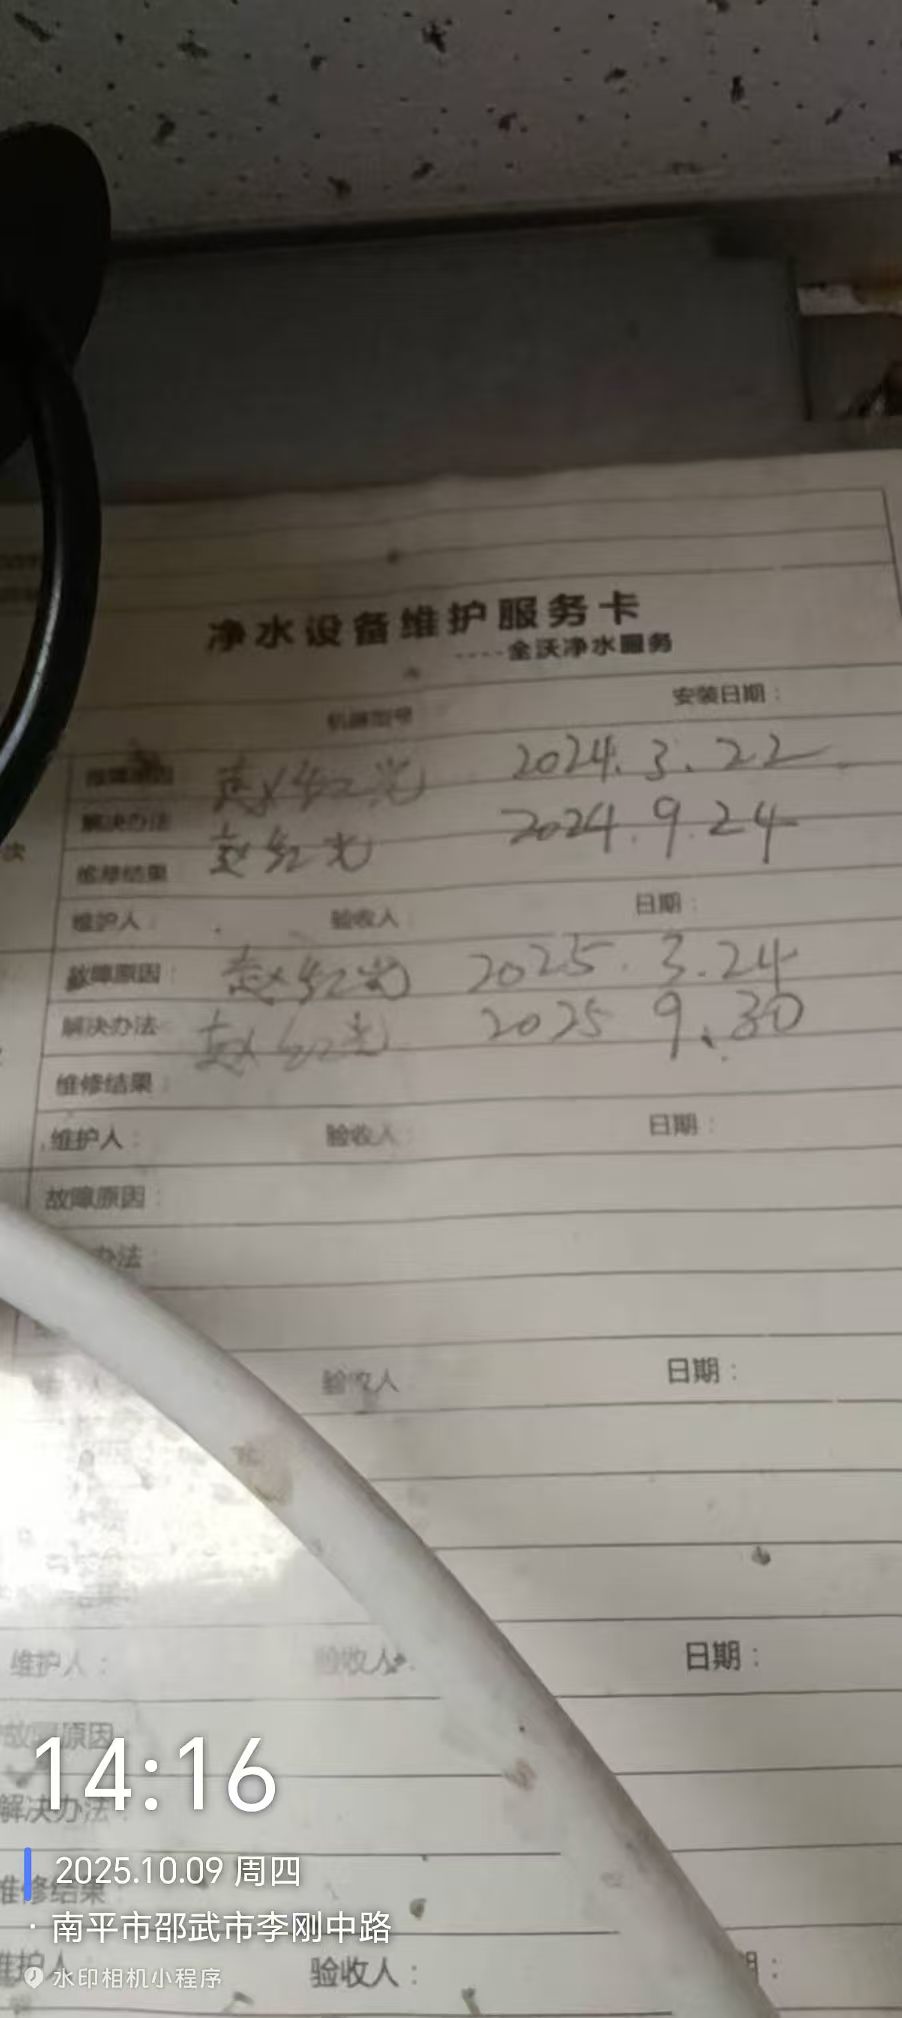 净水设备维护服务卡
----全沃净水服务
机器型号 安装日期：
故障原因 赵红光 2024.3.22
解决办法 赵红光 2024.9.24
维修结果
维护人： 验收人： 日期：
次
故障原因： 赵红光 2025.3.24
解决办法： 赵红光 2025 9.30
维修结果：
维护人： 验收人： 日期：
故障原因：
办法：
验收人 日期：
维护人： 验收人： 日期：
故障原因
解决办法：
维修结果
维护人 验收人： 期：
14:16
2025.10.09 周四
· 南平市邵武市李刚中路
水印相机小程序